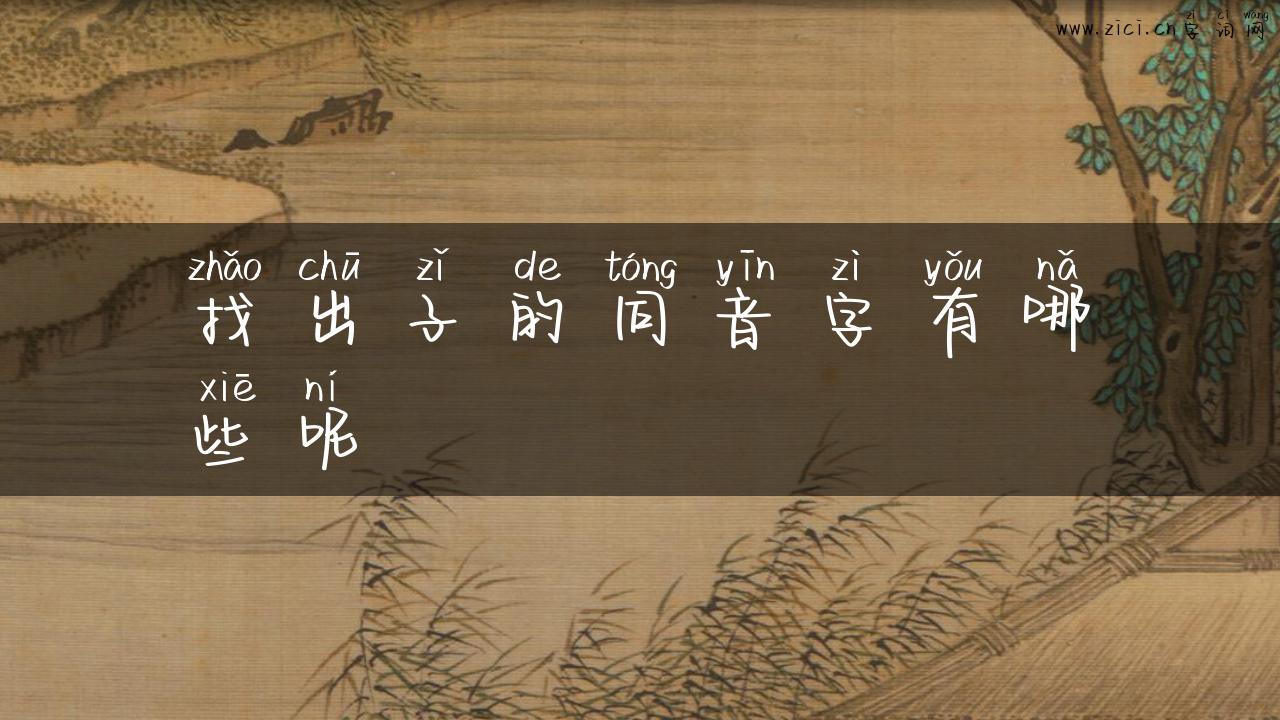 zì cí wǎng
www.zici.cn字词网
zhǎo chū zǐ de tóng yīn zì yǒu nǎ
找出子的同音字有哪
xiē ní
些呢